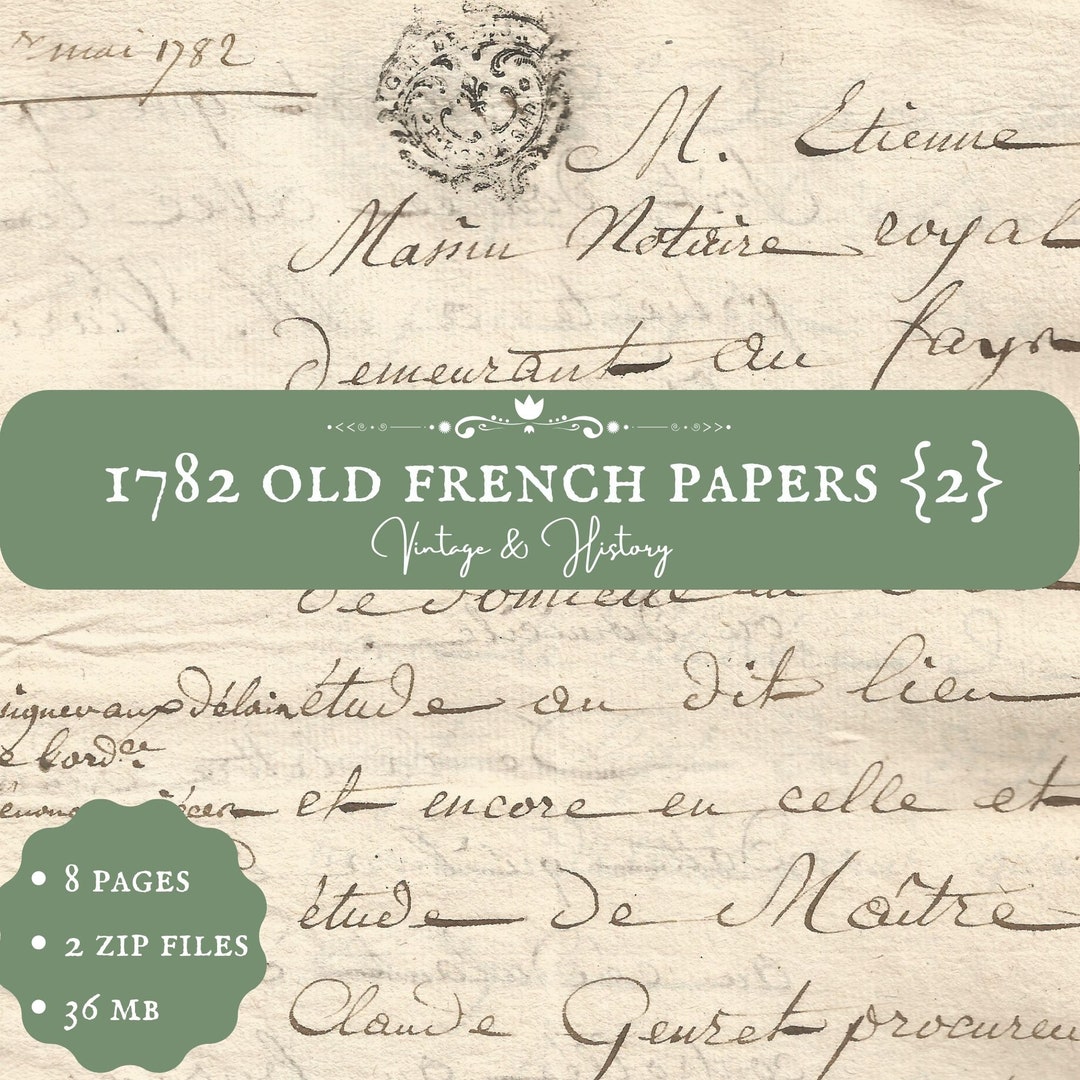 mai 1782
M. Etienne
Massin Notaire royal
demeurant au fays
1782 OLD FRENCH PAPERS {2}
Vintage & History
de Domicile
étude au dit lieu
et encore en celle et
étude de Maître
Claude Genret procureu
• 8 PAGES
• 2 ZIP FILES
• 36 MB